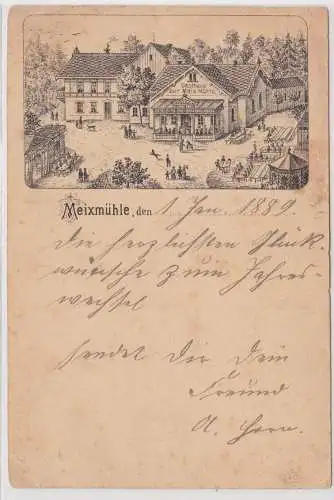 Gasthaus
Zur Meix-Mühle
Meixmühle, den 1. Jan. 1889.
Die herzlichsten Glück-
wünsche zum Jahres-
wechsel
sendet Dir Dein
Freund
A. Horn.